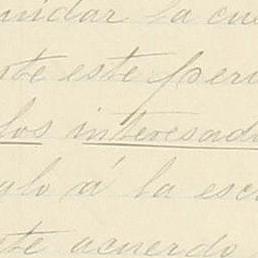 uidar la cue
te este peri
los interesad
glo á la esc
te acuerdo